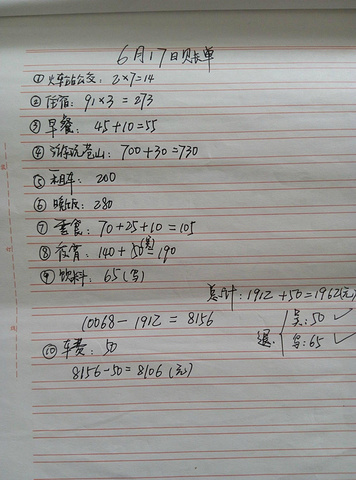 6月17日账单
① 火车站公交: 2×7=14
② 住宿: 91×3=273
③ 早餐: 45+10=55
④ 游玩苍山: 700+30=730
⑤ 租车: 200
⑥ 晚饭: 280
⑦ 零食: 70+25+10=105
⑧ 夜宵: 140+50=190
⑨ 饮料: 65(写)
总计: 1912+50=1962(元)
10068-1912=8156
退: 吴: 50 ✓
写: 65 ✓
⑩ 车费: 50
8156-50=8106(元)